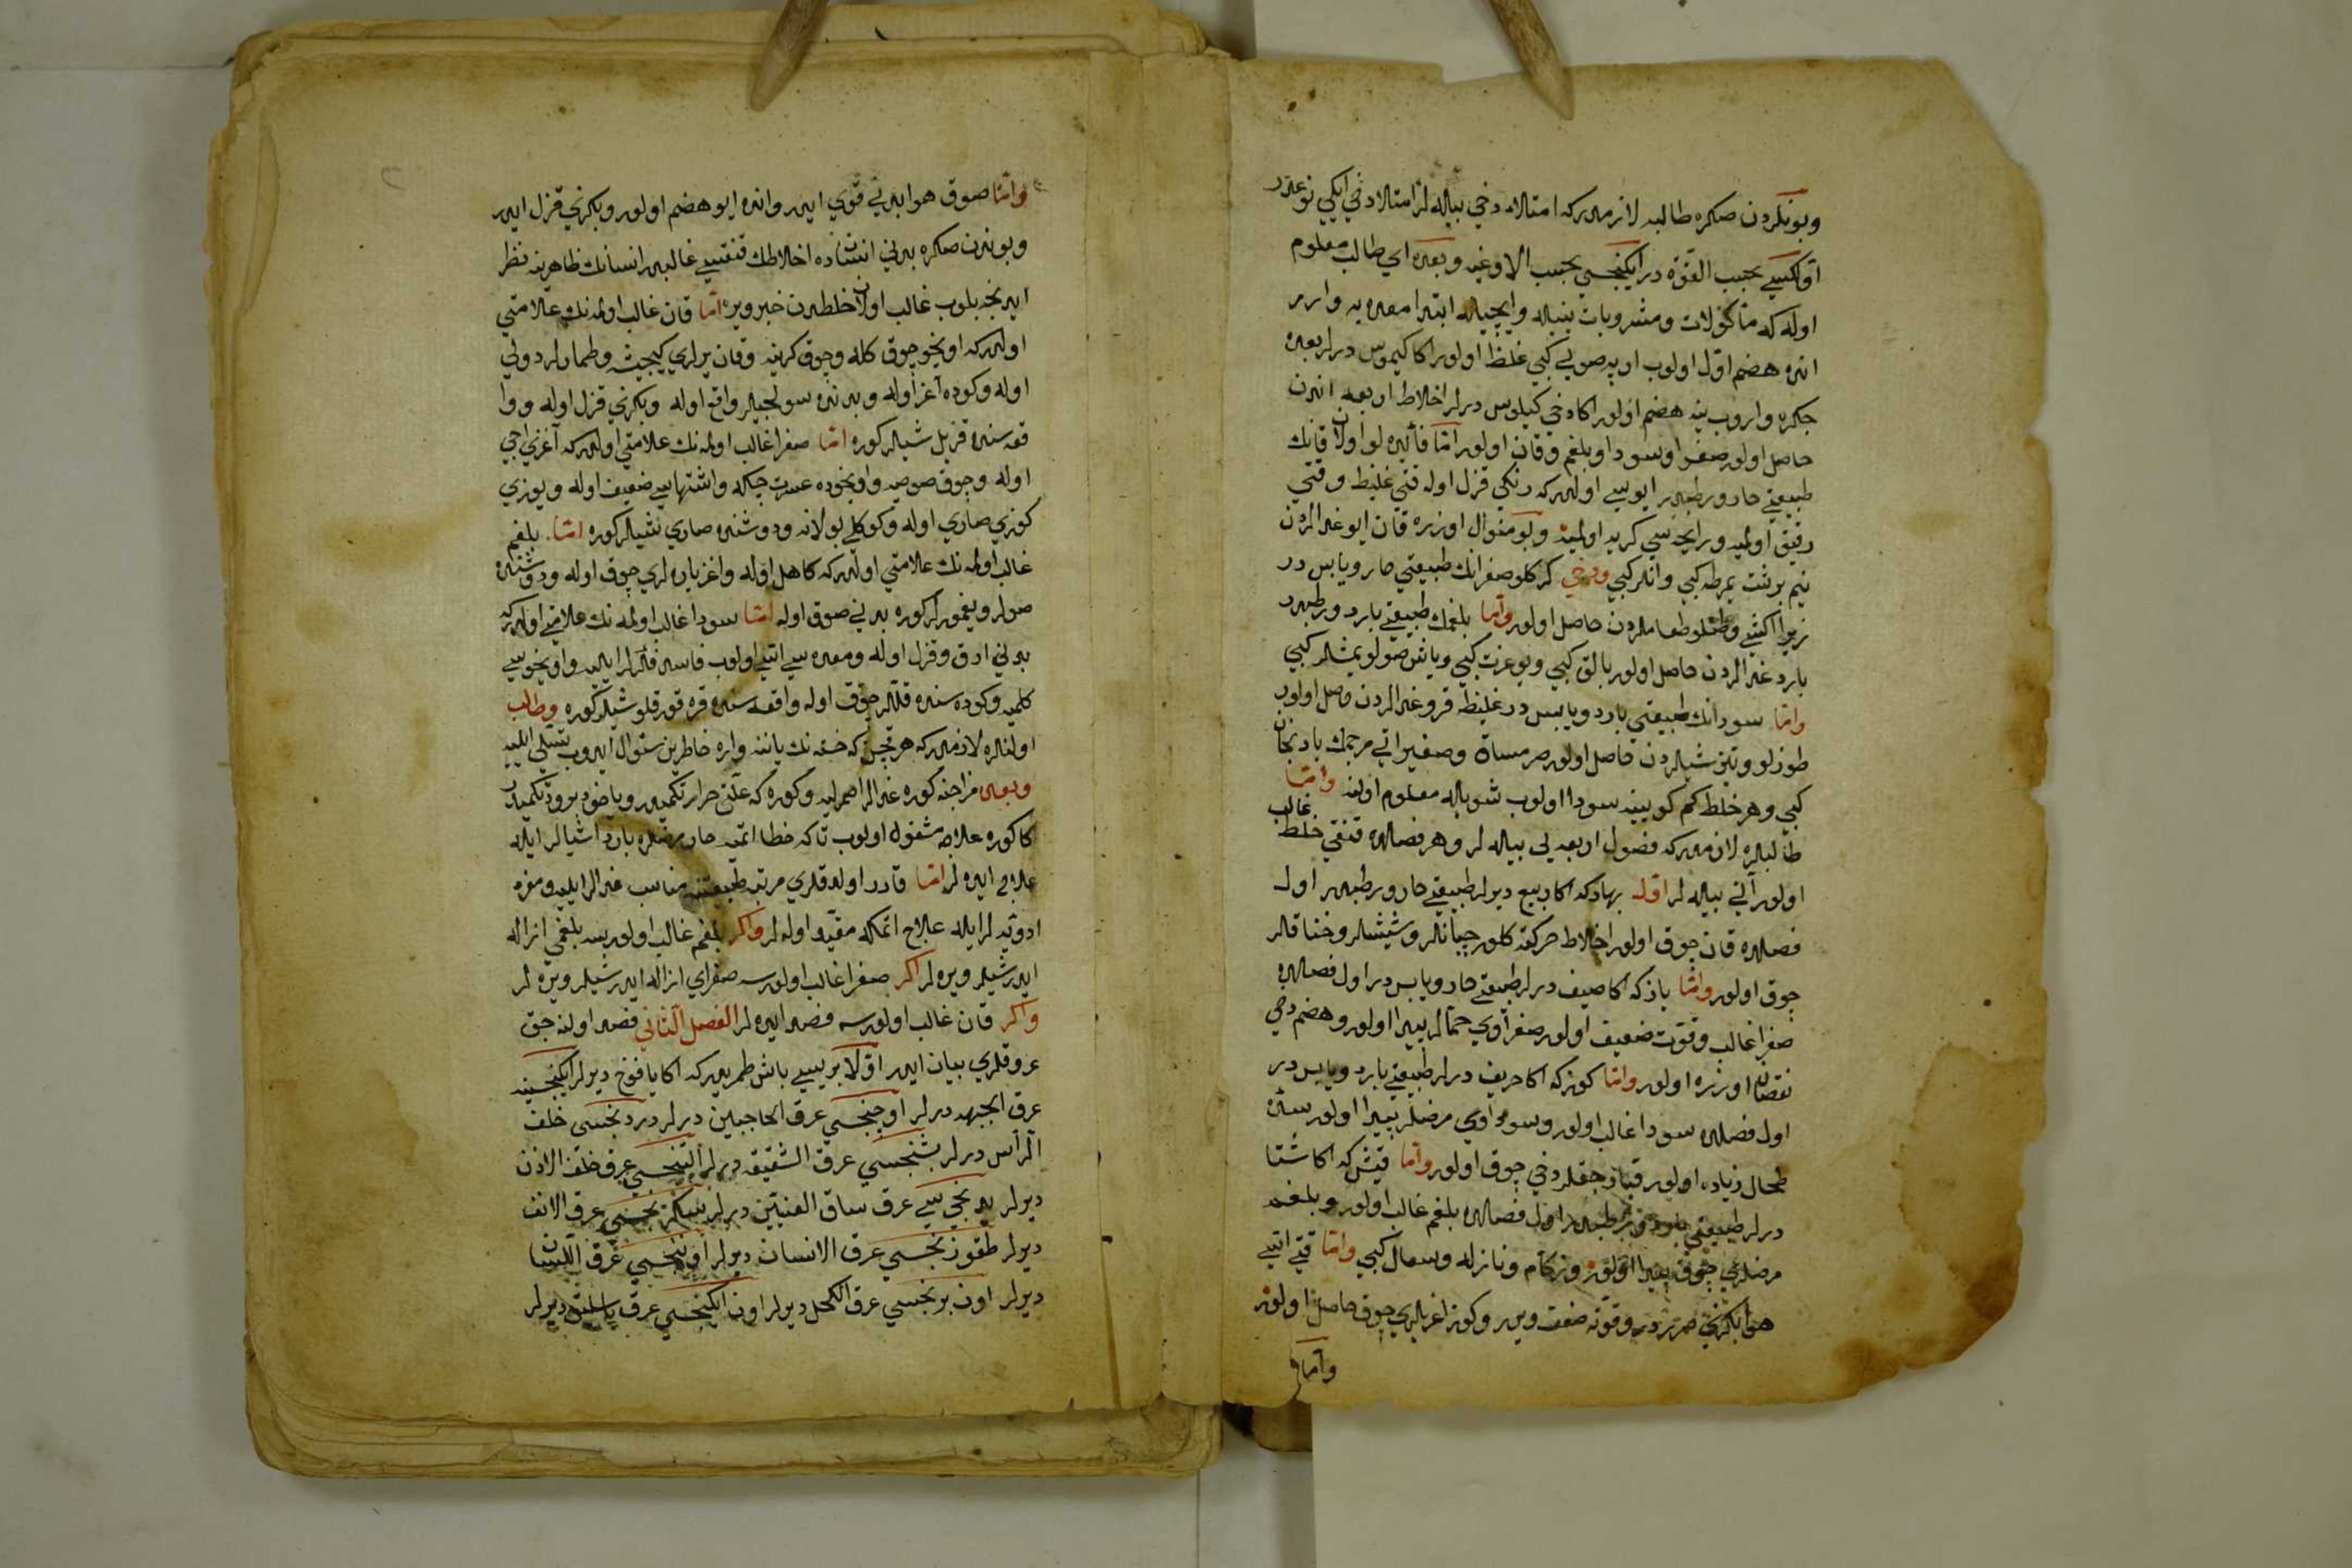 وبونكردن صكره طالبه لازمدركه امتلاء دخى بيله لر امتلا دخى ايكى نوعدر
اوّلكيسى بحسب القوّة در ايكنجسى بحسب الاوعيه وبعده اى طالب معلوم
اوله كه مأكولات ومشروبات ينيله وايچيله ابتدا معده يه وارر
انده هضم اوّل اولوب ارپه صويى كبى غلظ اولور اكا كيموس ديرلر بعده
جكره واروب ينه هضم اولور اكا دخى كيلوس ديرلر اخلاط اربعه اندن
حاصل اولور صفرا وسودا وبلغم وقان اولور امّا فائده لو اولان قانك
طبيعتى حار ورطبدر ايوسى اولدركه رنكى قزل اوله قتى غليظ وقتى
رقيق اولميه ورايحه سى كريه اولميه وبو منوال اوزره قان ايو غدالردن
نيم برشت يمرطه كبى وانلر كبى ودخى كركلو صفرانك طبيعتى حار ويابس در
زيرا اكشى وطتلو طعاملردن حاصل اولور وامّا بلغمك طبيعتى بارد ورطبدر
بارد غدالردن حاصل اولور بالق كبى ويوغرت كبى وياش صولو يمشلر كبى
وامّا سودانك طبيعتى بارد ويابس در غليظ قرو غدالردن حاصل اولور
طوزلو وتيز شيلردن حاصل اولور صرمساق وصغير اتى مرجمك بادنجان
كبى وهر خلط كم كوينه سودا اولوب شويله معلوم اولنه وامّا
طالبلره لازمدركه فصول اربعه يى بيله لر وهر فصلده قنقى خلط غالب
اولور آنى بيله لر اوّل بهاركه اكا ربيع ديرلر طبيعتى حار ورطبدر اول
فصلده قان چوق اولور اخلاط حركته كلور چبانلر وشيشلر وخناقلر
چوق اولور وامّا يازكه اكا صيف ديرلر طبيعتى حار ويابس در اول فصلده
صفرا غالب وقوت ضعيف اولور صفراوى حمّالر پيدا اولور وهضم دخى
نقصان اوزره اولور وامّا كوزكه اكا خريف ديرلر طبيعتى بارد ويابس در
اول فصلده سودا غالب اولور وسوداوى مرضلر پيدا اولور سدّه
طحال زياده اولور دخى چوق اولور وامّا قيش كه اكا شتا
ديرلر طبيعتى بارد ورطبدر اول فصلده بلغم غالب اولور وبلغم
مرضلرى چوق پيدا اولور وزكام ونازله وسعال كبى وامّا قتى اسّى
هوا بكزى صرردر وقوته ضعف ويرر وكوز اغريلرى چوق حاصل اولور
وامّا
وامّا صوق هوا بدنى قوى ايدر وانده ايو هضم اولور وبكزى قزل ايدر
وبوندن صكره بدنى انسانده اخلاطك قنقيسى غالبدر انسانك ظاهرينه نظر
ايدنجه بلوب غالب اولان خلطدن خبر ويره امّا قان غالب اولمه نك علامتى
اولدركه اويخو چوق كله وچوق كرينه وقان يرلرى كيجيشه وطمارلر دولى
اوله وكوده آغر اوله وبدننده سولجيلر واقع اوله وبكزى قزل اوله ووا
قعه سنده قزيل شيلر كوره امّا صفرا غالب اولمه نك علامتى اولدركه آغزى اجى
اوله وچوق صوصيه واويخوده عسرت چكه واشتهاسى ضعيف اوله ويوزى
كوزى صارى اوله وكوكلى بولانه ودوشنده صارى نشيلر كوره امّا بلغم
غالب اولمه نك علامتى اولدركه كاهل اوله واغز يارلرى چوق اوله ودوشنده
صولر ويغمورلر كوره بدنى صوق اوله امّا سودا غالب اولمه نك علامتى اولدركه
بدنى ارق وقزل اوله ومعده سى اتنى اولوب فاسد فكرلر ايليه واويخوسى
كلميه وكوده سنده قللر چوق اوله واقعه سنده قره قورقلو شيلر كوره وطالب
اولنلره لازمدركه هر قچن كه خسته نك ياننه واره خاطرين سئوال ايدوب تسلى ايليه
وبعده مزاجنه كوره غدالر اصمرليه وكوره كه علّتى حرارتكميدر وياخود برودتكميدر
اكا كوره علاجه مشغول اولوب تاكه خطا اتميه حار مرضلره بارد اشيالر ايله
علاج ايده لر امّا قادر اولدقلرى مرتبه طبيعتنه مناسب غدالر ايليه ومفرد
ادويه لر ايله علاج اتمكه مقيّد اوله لر واكر بلغم غالب اولورسه بلغمى ازاله
ايدر شيلر ويره لر اكر صفرا غالب اولورسه صفراى ازاله ايدر شيلر ويره لر
واكر قان غالب اولورسه فصد ايده لر الفصل الثانى فصد اولنه جق
عروقلرى بيان ايدر اوّلا بريسى باش طمريدركه اكا يافوخ ديرلر ايكنجيسنه
عرق الجبهه ديرلر اوچنجسى عرق الحاجبين ديرلر دردنجسى خلف
الرأس ديرلر بشنجسى عرق الشقيقه ديرلر التنجسى عرق خلف الاذن
ديرلر يدنجيسى عرق ساق العينين ديرلر سكزنجسى عرق الانف
ديرلر طقوزنجسى عرق الانسان ديرلر اوننجسى عرق اللسان
ديرلر اون برنجسى عرق الكحل ديرلر اون ايكنجسى عرق باسليق ديرلر